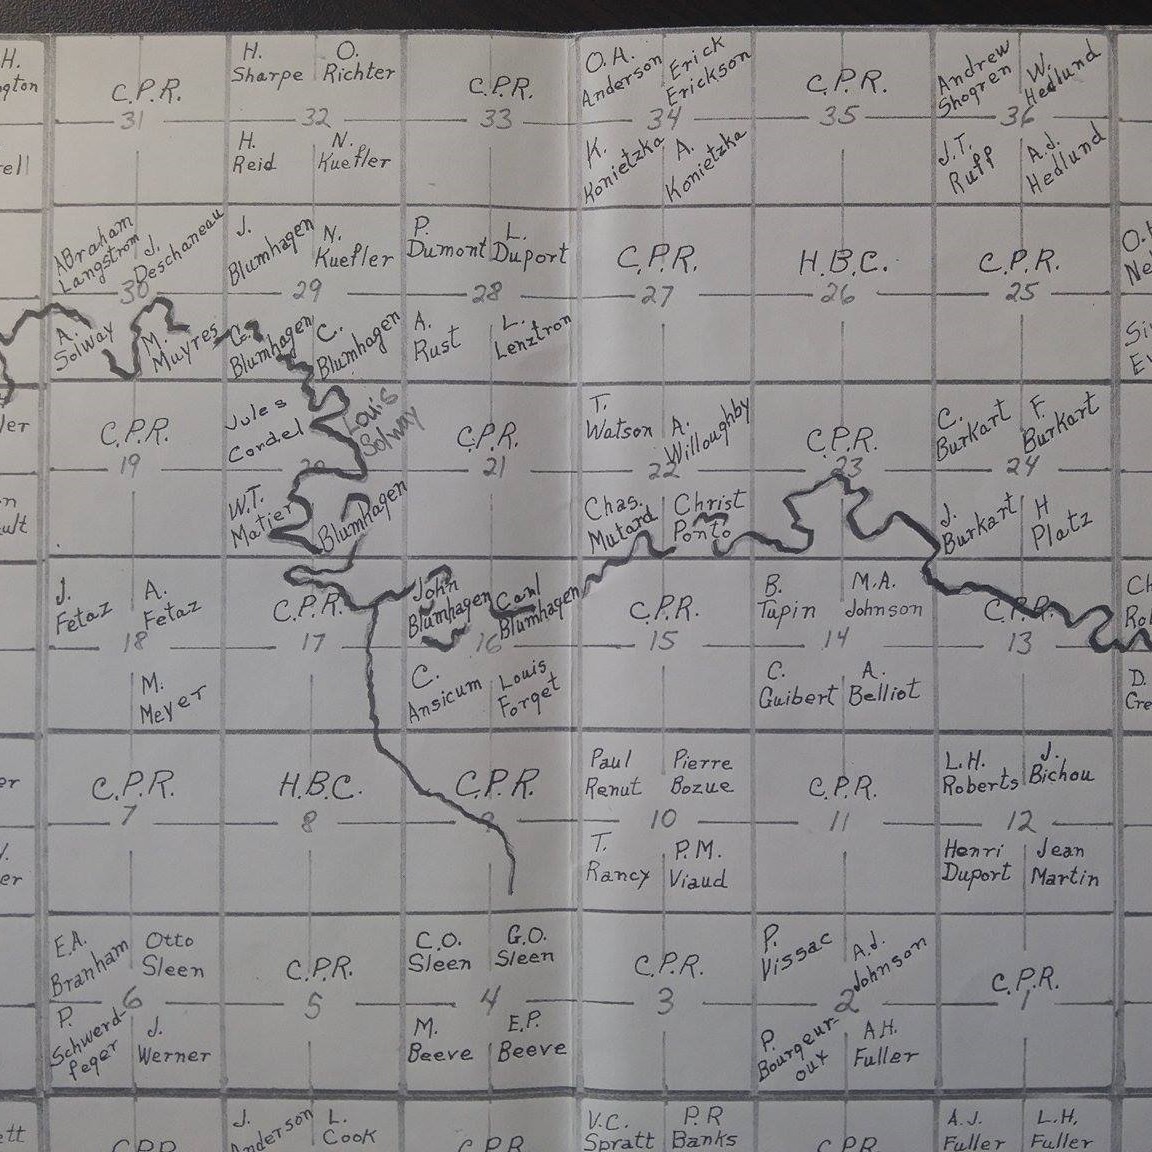 H.
C.P.R.
31
H.
Sharpe
O.
Richter
32
H.
Reid
N.
Kuefler
C.P.R.
33
O.A.
Anderson
Erick
Erickson
34
K.
Konietzka
A.
Konietzka
C.P.R.
35
Andrew
Shogren
W.
Hedlund
36
J.T.
Ruff
A.J.
Hedlund
Abraham
Langstrom
J.
Deschaneau
30
A.
Solway
M.
Muyres
J.
Blumhagen
N.
Kuefler
29
G.
Blumhagen
C.
Blumhagen
P.
Dumont
L.
Duport
28
A.
Rust
L.
Lenztron
C.P.R.
27
H.B.C.
26
C.P.R.
25
C.P.R.
19
Jules
Cordel
Louis
Solway
20
W.T.
Matier
J.
Blumhagen
C.P.R.
21
T.
Watson
A.
Willoughby
22
Chas.
Mutard
Christ
Ponto
C.P.R.
23
C.
Burkart
F.
Burkart
24
J.
Burkart
H
Platz
J.
Fetaz
A.
Fetaz
18
M.
Meyer
C.P.R.
17
John
Blumhagen
Carl
Blumhagen
16
C.
Ansicum
Louis
Forget
C.P.R.
15
B.
Tupin
M.A.
Johnson
14
C.
Guibert
A.
Belliot
C.P.R.
13
D.
C.P.R.
7
H.B.C.
8
C.P.R.
9
Paul
Renut
Pierre
Bozue
10
T.
Rancy
P.M.
Viaud
C.P.R.
11
L.H.
Roberts
J.
Bichou
12
Henri
Duport
Jean
Martin
E.A.
Branham
Otto
Sleen
6
P.
Schwerd-
feger
J.
Werner
C.P.R.
5
C.O.
Sleen
G.O.
Sleen
4
M.
Beeve
E.P.
Beeve
C.P.R.
3
P.
Vissac
A.J.
Johnson
2
P.
Bourgeur-
oux
A.H.
Fuller
C.P.R.
1
C.P.R.
J.
Anderson
L.
Cook
C.P.R.
V.C.
Spratt
P.R
Banks
C.P.R.
A.J.
Fuller
L.H.
Fuller